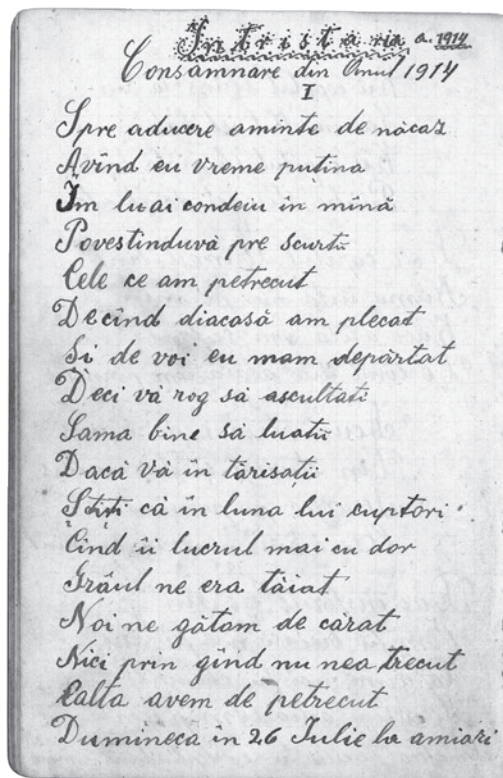 Intristaria a. 1914
Consamnare din Anul 1914
I
Spre aducere aminte de nacaz
Avînd eu vreme puţina
Îm luai condeiu în mînă
Povestinduvă pre scurtü
Cele ce am petrecut
Decînd diacasă am plecat
Si de voi eu mam depărtat
Deci vă rog să ascultati
Sama bine să luatii
Dacă vă în tărisaţii
Stiţi că în luna lui cuptori
Cînd îi lucrul mai cu dor
Grăul ne era tăiat
Noi ne gătam de carat
Nici prin gînd nu nea trecut
Calta avem de petrecut
Dumineca in 26 Iulie la amiazi